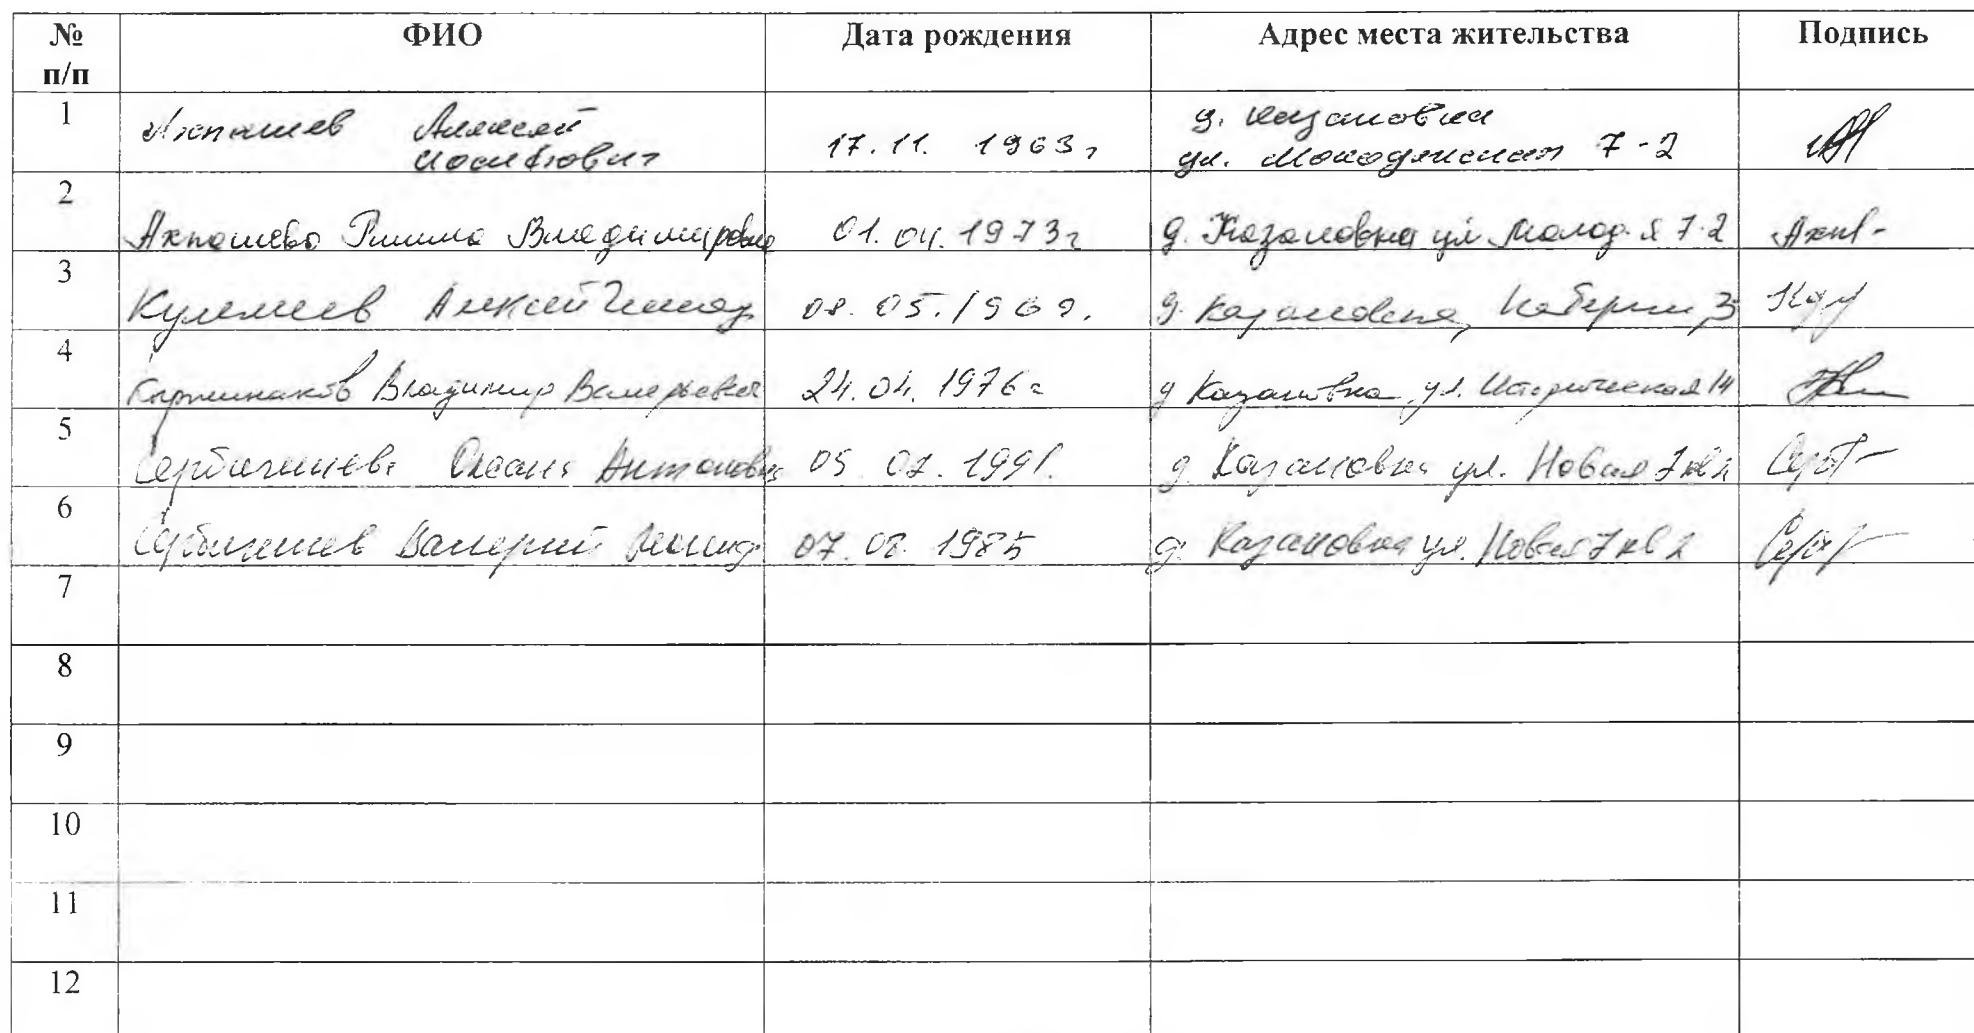 № п/п ФИО Дата рождения Адрес места жительства Подпись
1 Ахпашев Алексей Иосифович 17.11. 1963г д. Казановка ул. Молодежная 7-2
2 Ахпашева Римма Владимировна 01.04.1973г д. Казановка ул. Молод-я 7-2
3 Кулемеев Алексей Геннад 08.05.1969. д. Казановка, Набережн, 3
4 Кыржинаков Владимир Валерьевич 24.04.1976г д Казановка ул. Историческая 14
5 Сербигешева Оксана Антоновна 05 02. 1991. д. Казановка ул. Новая 7 кв 2
6 Сербигешев Валерий Леонид 07.08. 1985 д. Казановка ул. Новая 7 кв 2
7
8
9
10
11
12